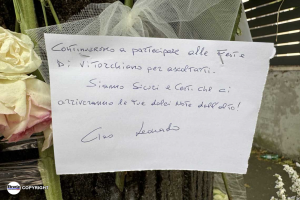 Continueremo a partecipare alle Feste
di Vitorchiano per ascoltarti.
Siamo sicuri e certi che ci
arriveranno le tue dolci note dall'alto!
Ciao Leonardo
COPYRIGHT